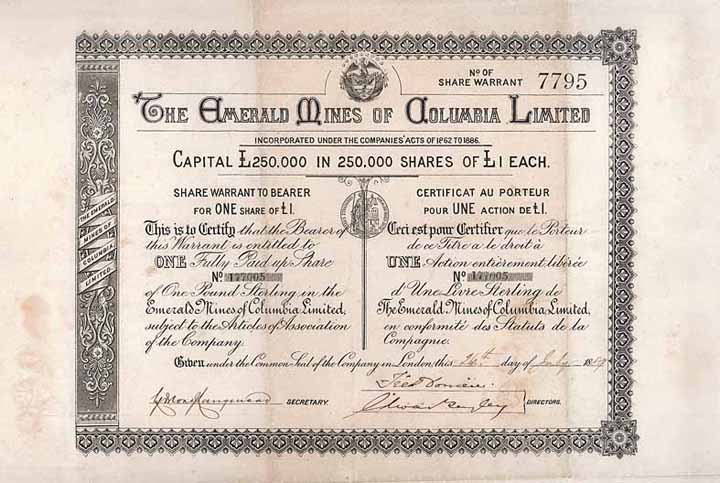 Nº OF
SHARE WARRANT 7795
THE EMERALD MINES OF COLUMBIA LIMITED
INCORPORATED UNDER THE COMPANIES' ACTS OF 1862 TO 1886.
CAPITAL £250.000 IN 250.000 SHARES OF £1 EACH.
SHARE WARRANT TO BEARER
FOR ONE SHARE OF £1.
This is to Certify that the Bearer of
this Warrant is entitled to
ONE Fully Paid up Share
Nº 177005
of One Pound Sterling in the
Emerald Mines of Columbia, Limited,
subject to the Articles of Association
of the Company.
CERTIFICAT AU PORTEUR
POUR UNE ACTION DE £1.
Ceci est pour Certifier que le Porteur
de ce Titre a le droit à
UNE Action entièrement libérée
Nº 177005
d'Une Livre Sterling de
The Emerald Mines of Columbia, Limited,
en conformité des Statuts de la
Compagnie.
Given under the Common Seal of the Company in London, this 26th day of July 1889
SECRETARY.
DIRECTORS.
THE EMERALD
MINES OF
COLUMBIA
LIMITED.